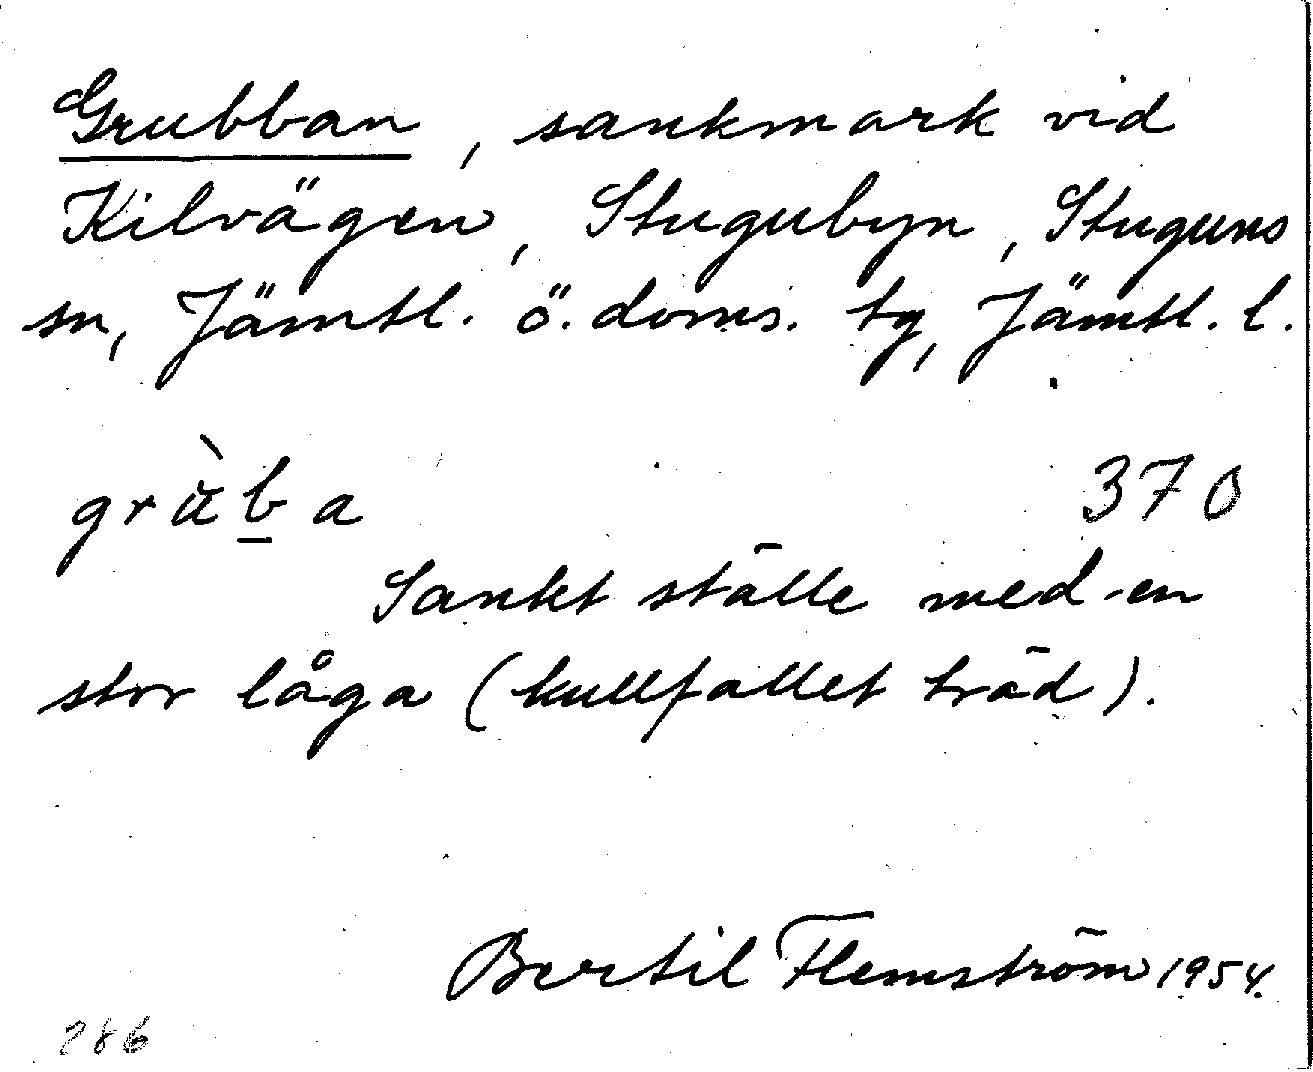 Grubban, sankmark vid
Kilvägen, Stugubyn, Stuguns
sn, Jämtl. ö. doms. tg, Jämtl. l.
grùb̲a 370
Sankt ställe med en
stor låga (kullfallet träd).
Bertil Flemström 1954.
286